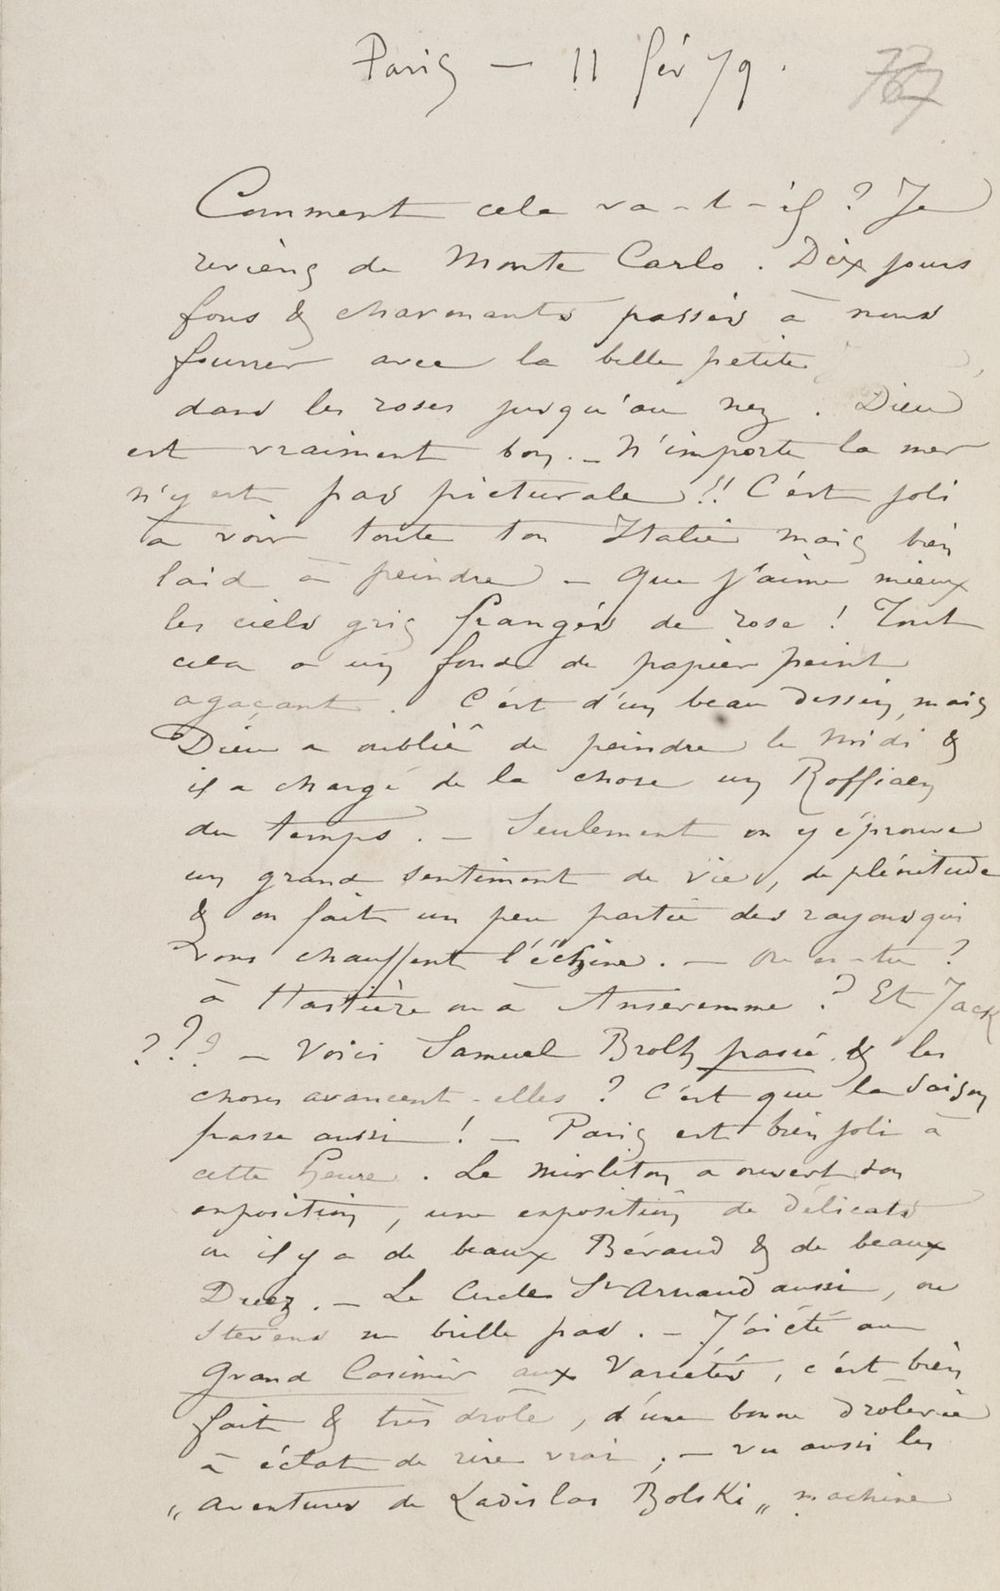 Paris — 11 fév 79.
787
Comment cela va-t-il ? Je
reviens de Monte Carlo. Dix jours
fous & charmants passés à nous
fourrer avec la belle petite
dans les roses jusqu'au nez. Dieu
est vraiment bon. — N'importe la mer
n'y est pas picturale !! C'est joli
à voir toute ton Italie mais bien
laid à peindre — que j'aime mieux
les ciels gris frangés de rose ! Tout
cela a un fond de papier peint
agaçant. C'est d'un beau dessin, mais
Dieu a oublié de peindre le Midi &
il a chargé de la chose un Roffiaen
du temps. — Seulement on y éprouve
un grand sentiment de vie, de plénitude
& on fait un peu partie des rayons qui
vous chauffent l'échine. — Ou es-tu ?
à Hastière ou à Anseremme ? Et Jack
? ? ? — Voici Samuel Brolh passé & les
choses avancent-elles ? C'est que la saison
passe aussi ! — Paris est bien joli à
cette heure. Le Mirliton a ouvert son
exposition, une exposition de délicats
ou il y a de beaux Béraud & de beaux
Duez. — Le Cercle St Arnaud aussi, ou
Stevens ne brille pas. — J'ai été au
Grand Casimir aux Variétés, c'est bien
fait & très drôle, d'une bonne drolerie
à éclat de rire vrai ; — vu aussi les
„ Aventures de Ladislas Bolski „ machine